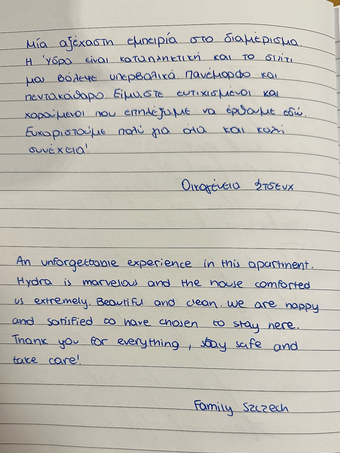 Μία αξέχαστη εμπειρία στο διαμέρισμα.
Η Ύδρα είναι καταπληκτική και το σπίτι
μας βόλεψε υπερβολικά. Πανέμορφο και
πεντακάθαρο. Είμαστε ευτυχισμένοι και
χαρούμενοι που επιλέξαμε να έρθουμε εδώ.
Ευχαριστούμε πολύ για όλα και καλή
συνέχεια!
Οικογένεια Στσενχ
An unforgettable experience in this apartment.
Hydra is marvelous and the house comforted
us extremely. Beautiful and clean. We are happy
and satisfied to have chosen to stay here.
Thank you for everything, stay safe and
take care!
Family Szczech